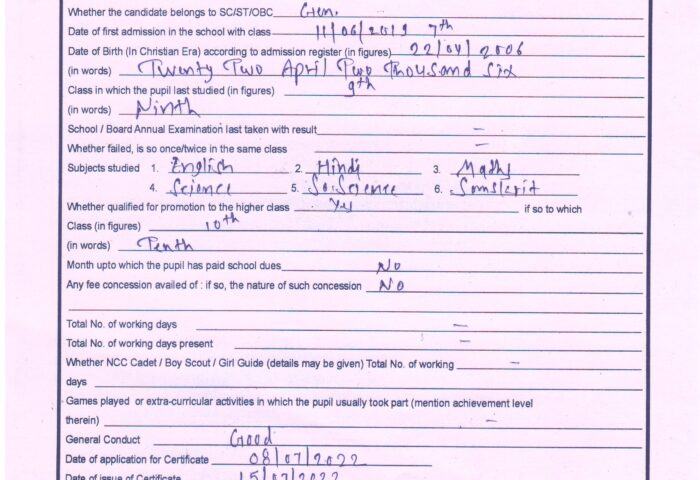 Whether the candidate belongs to SC/ST/OBC Gen.
Date of first admission in the school with class 11/06/2019 7th
Date of Birth (In Christian Era) according to admission register (in figures) 22/04/2006
(in words) Twenty Two April Two Thousand Six
Class in which the pupil last studied (in figures) 9th
(in words) Ninth
School / Board Annual Examination last taken with result –
Whether failed, is so once/twice in the same class –
Subjects studied 1. English 2. Hindi 3. Maths
4. Science 5. So.Science 6. Sanskrit
Whether qualified for promotion to the higher class Yes if so to which
Class (in figures) 10th
(in words) Tenth
Month upto which the pupil has paid school dues No
Any fee concession availed of : if so, the nature of such concession No
Total No. of working days –
Total No. of working days present –
Whether NCC Cadet / Boy Scout / Girl Guide (details may be given) Total No. of working –
days
Games played or extra-curricular activities in which the pupil usually took part (mention achievement level
therein) –
General Conduct Good
Date of application for Certificate 08/07/2022
Date of issue of Certificate 15/07/2022